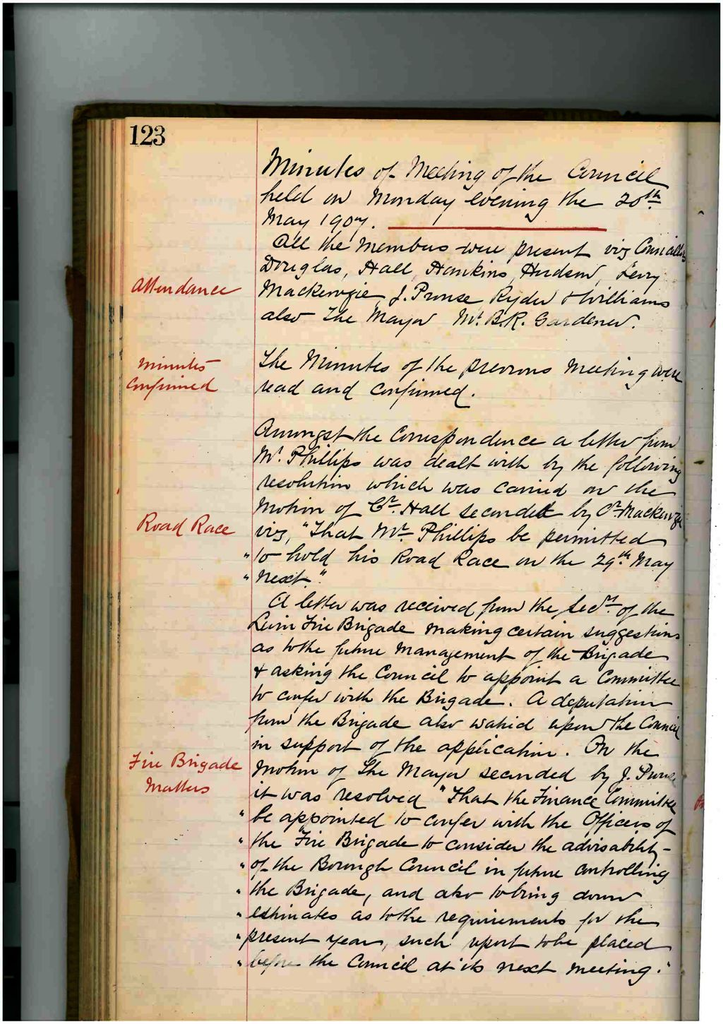 123
Minutes of Meeting of the Council
held on Monday evening the 20th
May 1907.
All the Members were present viz Councillors
Attendance
Douglas, Hall, Hawkins, Hudson, Levy
Mackenzie, J. Prouse Ryder & Williams
also The Mayor Mr. B.R. Gardener.
Minutes
Confirmed
The Minutes of the previous Meeting were
read and confirmed.
Amongst the Correspondence a letter from
Mr. Phillips was dealt with by the following
resolution which was carried on the
Motion of Cr. Hall seconded by Cr. Mackenzie
Road Race
viz, "That Mr. Phillips be permitted
" to hold his Road Race on the 29th May
" next."
A letter was received from the Secy. of the
Levin Fire Brigade making certain suggestions
as to the future management of the Brigade
& asking the Council to appoint a Committee
to confer with the Brigade. A deputation
from the Brigade also waited upon the Council
in support of the application. On the
Fire Brigade
Matters
Motion of The Mayor seconded by J. Prouse
it was resolved "That the Finance Committee
" be appointed to confer with the Officers of
" the Fire Brigade to consider the advisability
" of the Borough Council in future controlling
" the Brigade, and also to bring down
" estimates as to the requirements for the
" present year, such report to be placed
" before the Council at its next meeting."